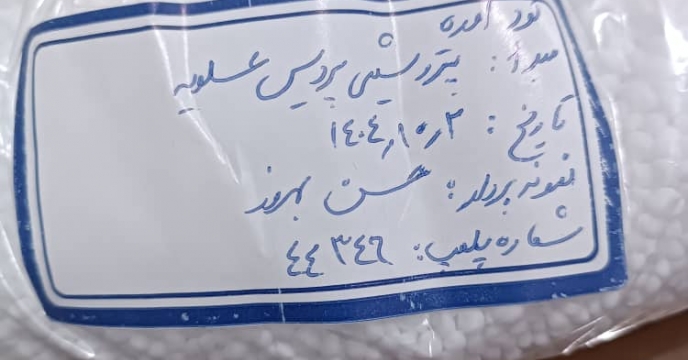 کود اوره
مبدا: پتروشیمی پردیس عسلویه
تاریخ: ۱٤۰٤٫۱۰٫۳
نمونه بردار: حسن بهروز
شماره پلمپ: ٤٤۳٤٦